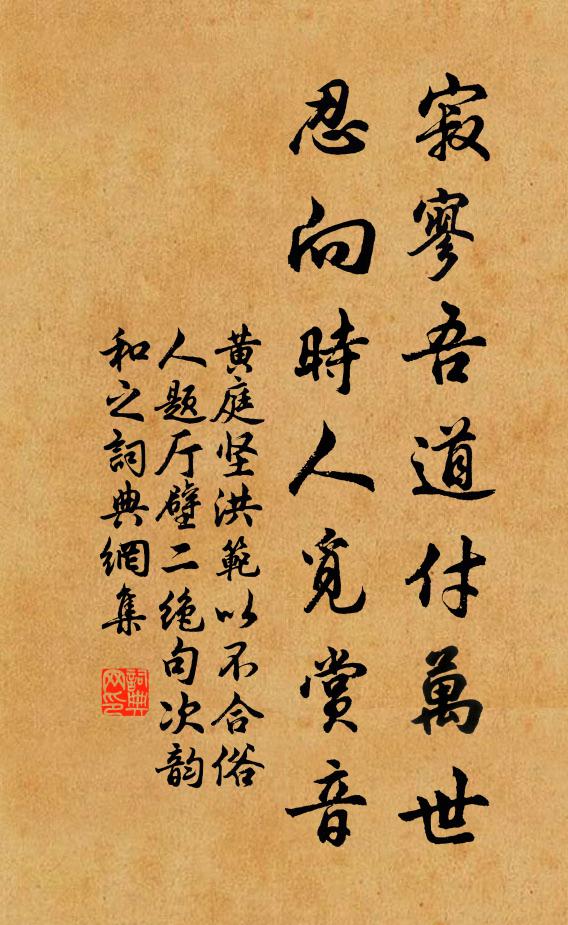 寂寥吾道付萬世
忍向時人覓賞音
黄庭坚洪範以不合俗
人題厅壁二绝句次韵
和之詞典網集
詞典网印